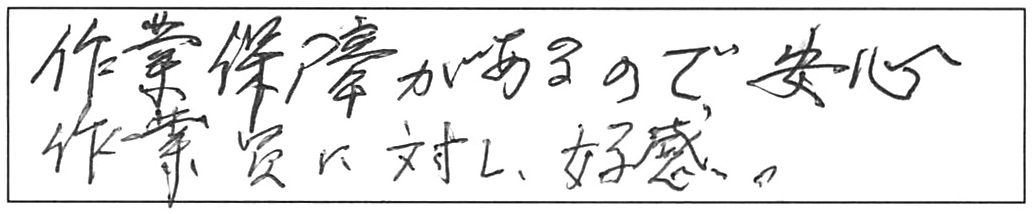 作業保障があるので、安心
作業員に対し、好感。